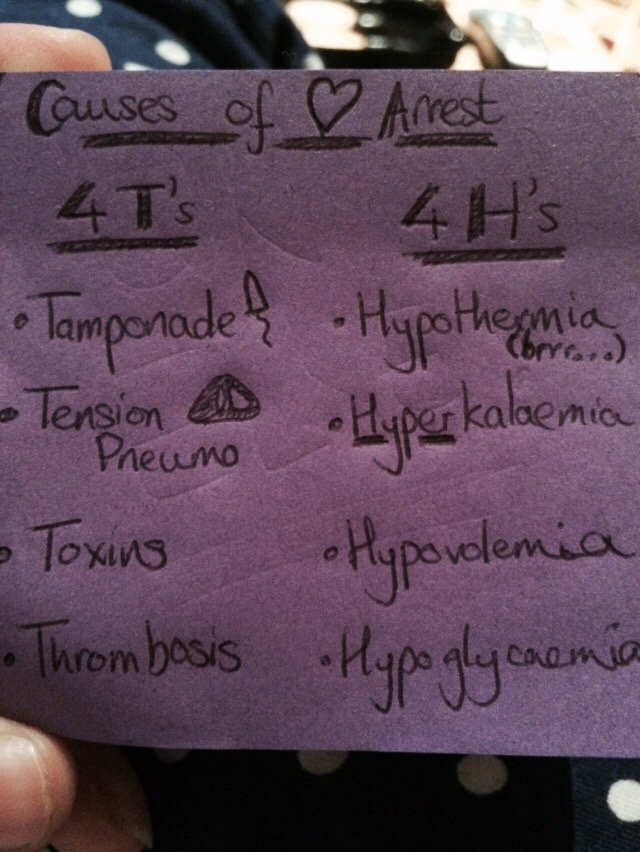 Causes of ♡ Arrest
4 T's
• Tamponade
• Tension
Pneumo
• Toxins
• Thrombosis
4 H's
• Hypothermia
(brrr...)
• Hyperkalaemia
• Hypovolemia
• Hypoglycaemia